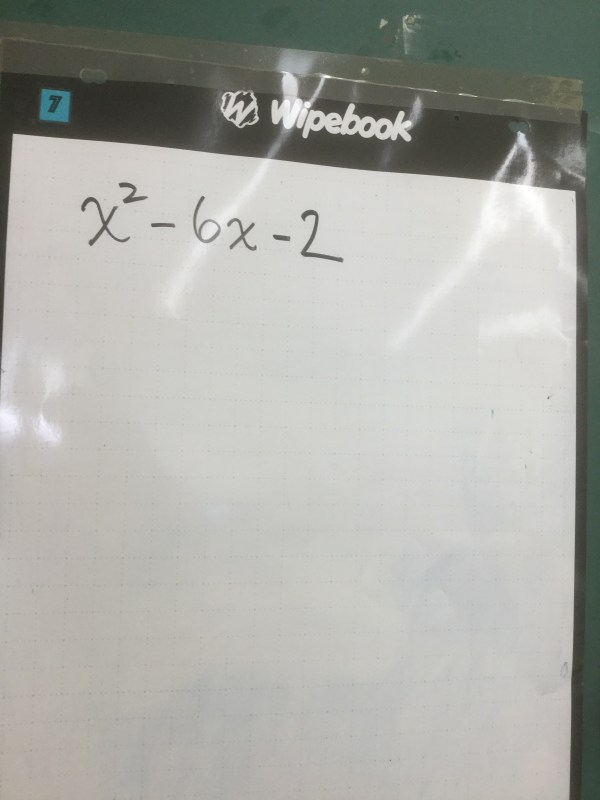 7
Wipebook
x² - 6x - 2